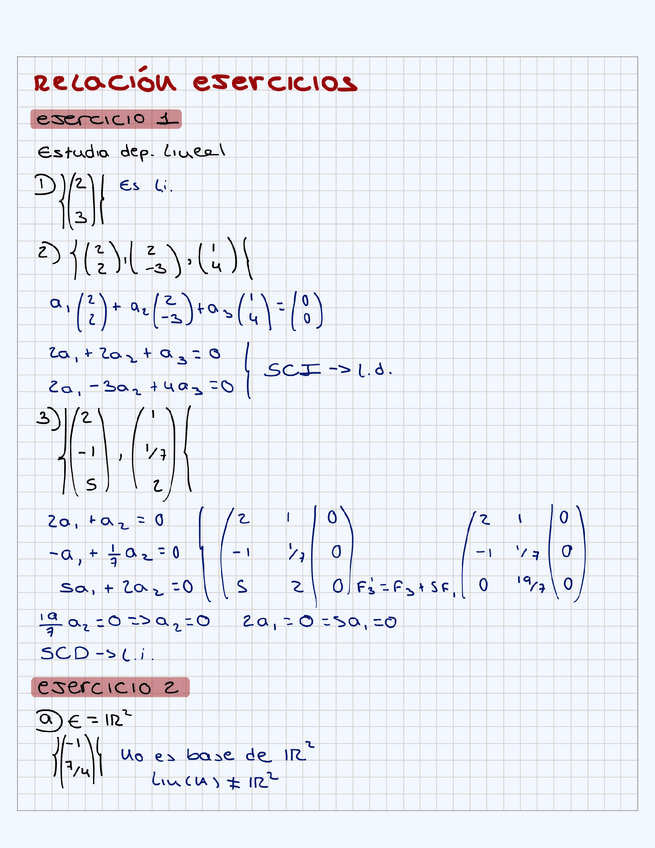 Relación ejercicios
ejercicio 1
Estudia dep. lineal
1) {(2 3)} Es l.i.
2) {(2 2), (2 -3), (1 4)}
a₁(2 2) + a₂(2 -3) + a₃(1 4) = (0 0)
2a₁ + 2a₂ + a₃ = 0
2a₁ - 3a₂ + 4a₃ = 0 } SCI -> l.d.
3) {(2 -1 5), (1 1/7 2)}
2a₁ + a₂ = 0 (2 1 | 0) (2 1 | 0)
-a₁ + 1/7 a₂ = 0 (-1 1/7 | 0) (-1 1/7 | 0)
5a₁ + 2a₂ = 0 (5 2 | 0) F₃' = F₃ + 5F₁ (0 19/7 | 0)
19/7 a₂ = 0 => a₂ = 0 2a₁ = 0 => a₁ = 0
SCD -> l.i.
ejercicio 2
a) E = ℝ²
{(-1 7/4)} No es base de ℝ²
Lin(H) ≠ ℝ²